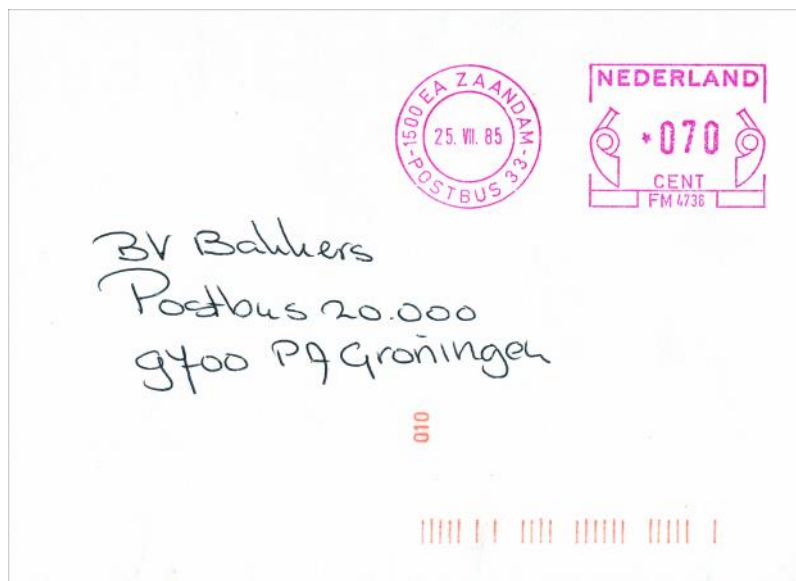 1500 EA ZAANDAM
25. VII. 85
POSTBUS 33
NEDERLAND
*070
CENT
FM 4736
BV Bakkers
Postbus 20.000
9700 PA Groningen
010